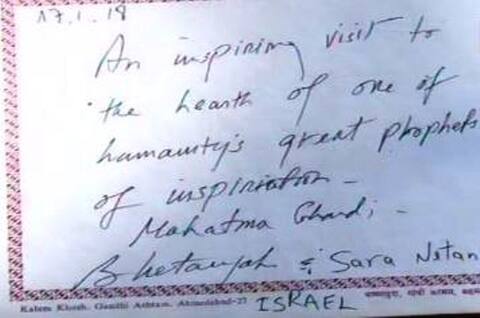 17.1.18
An inspiring visit to
the hearth of one of
humanity's great prophets
of inspiration -
Mahatma Ghandi -
& Sara Netan
ISRAEL
Kalam Khush, Gandhi Ashram, Ahmedabad-27